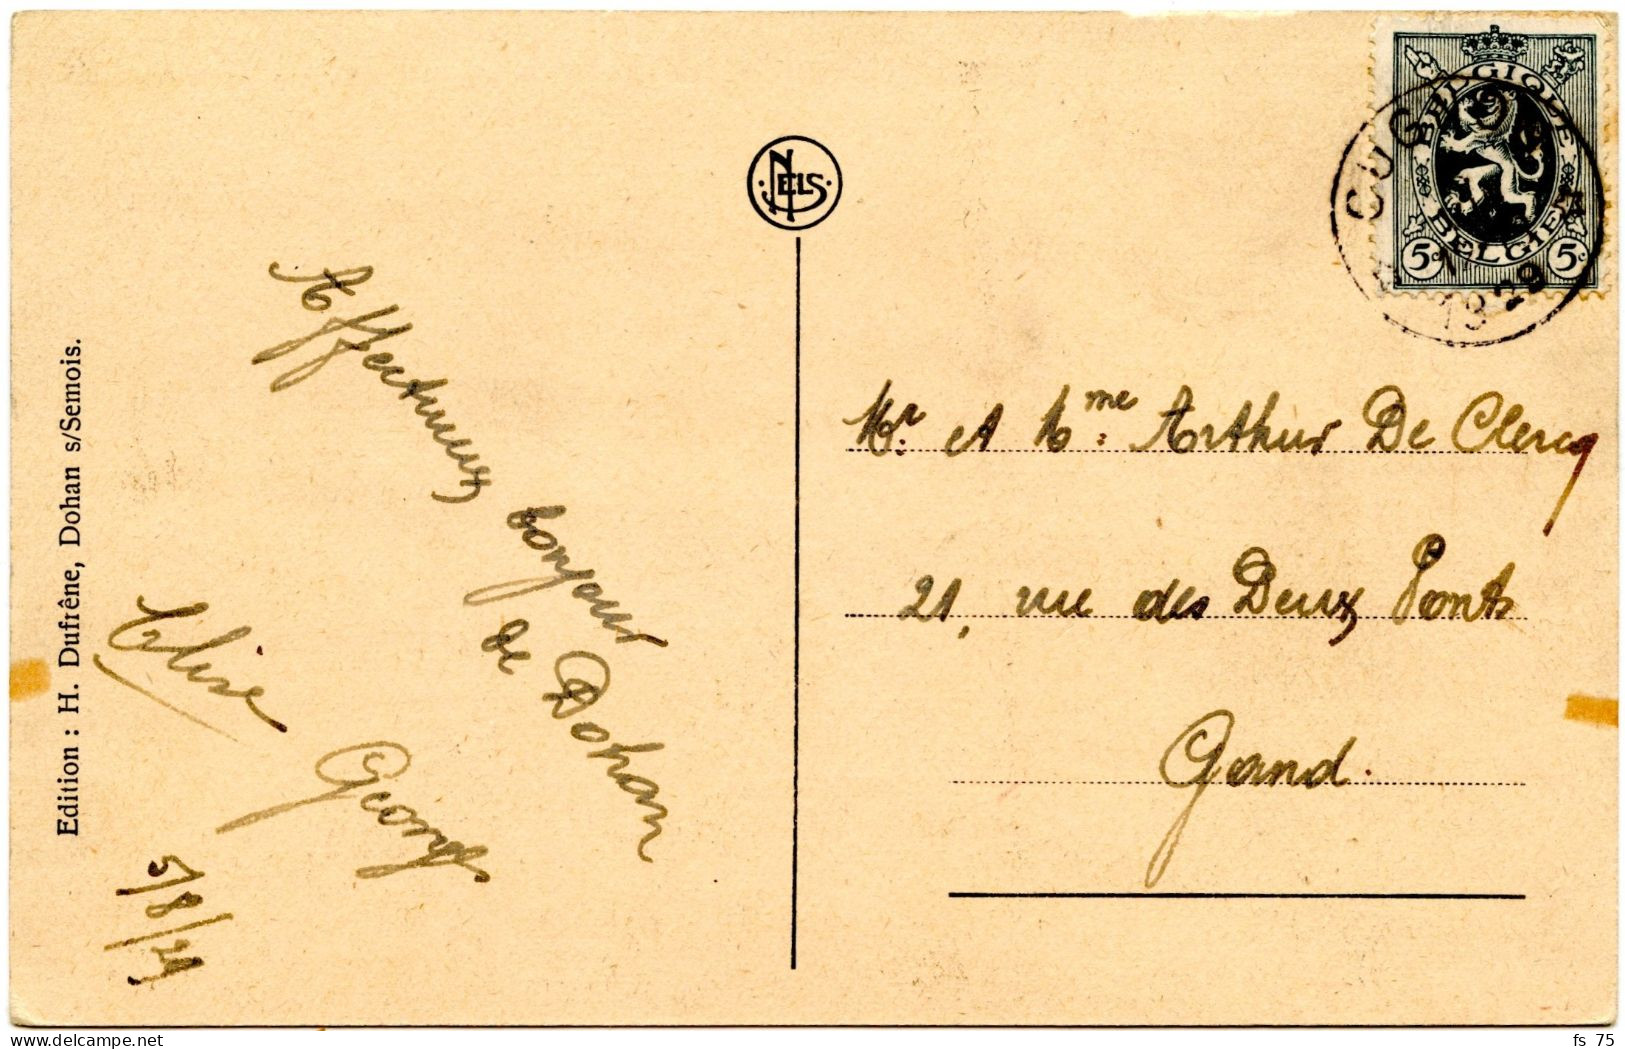 Edition : H. Dufrêne, Dohan s/Semois.
NELS
Affectueux bonjour
de Dohan
Elise
Georges
5/8/29
BELGIQUE
BELGIË
5c 5c
CUGNON
1929
Mr. et Mme Arthur De Clercq
21, rue des Deux Ponts
Gand.
fs 75